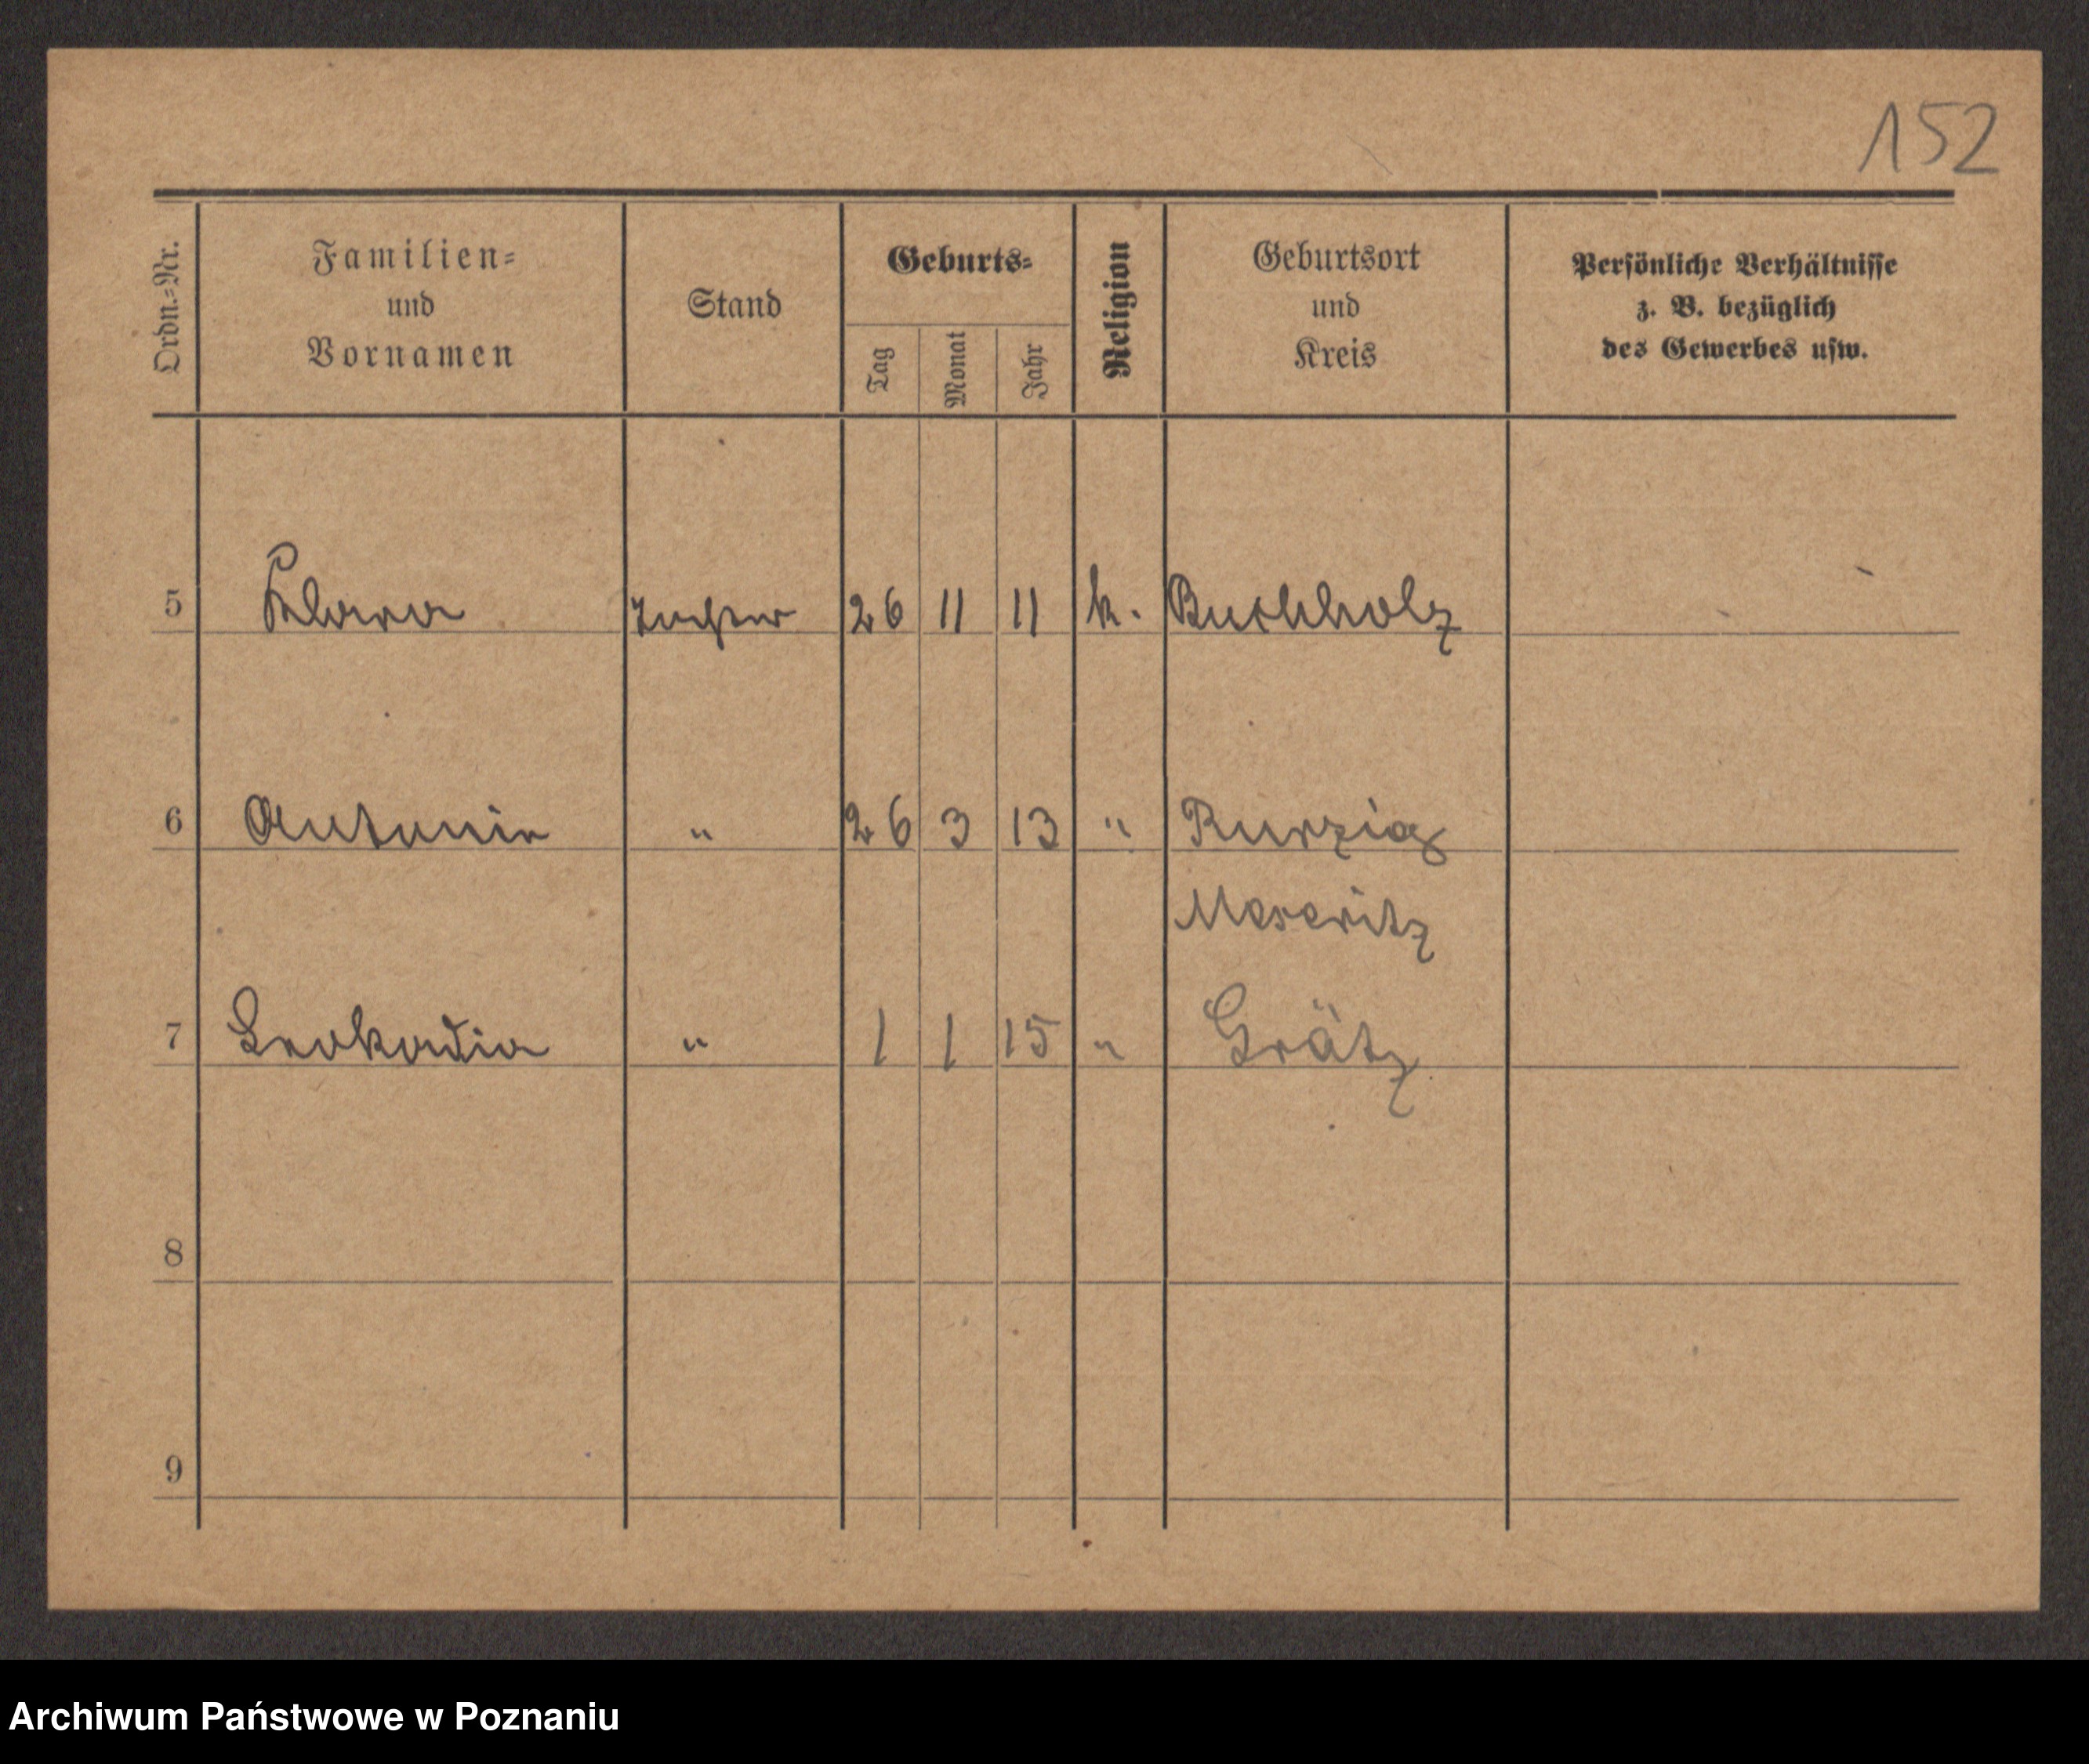 152
Ordn.=Nr.
Familien=
und
Vornamen
Stand
Geburts=
Tag
Monat
Jahr
Religion
Geburtsort
und
Kreis
Persönliche Verhältnisse
z. B. bezüglich
des Gewerbes usw.
5 Klara Tochter 26 11 11 k. Buchholz
6 Antonie " 26 3 13 " Kurzig
Meseritz
7 Leokadia " 1 1 15 " Grätz
8
9
Archiwum Państwowe w Poznaniu